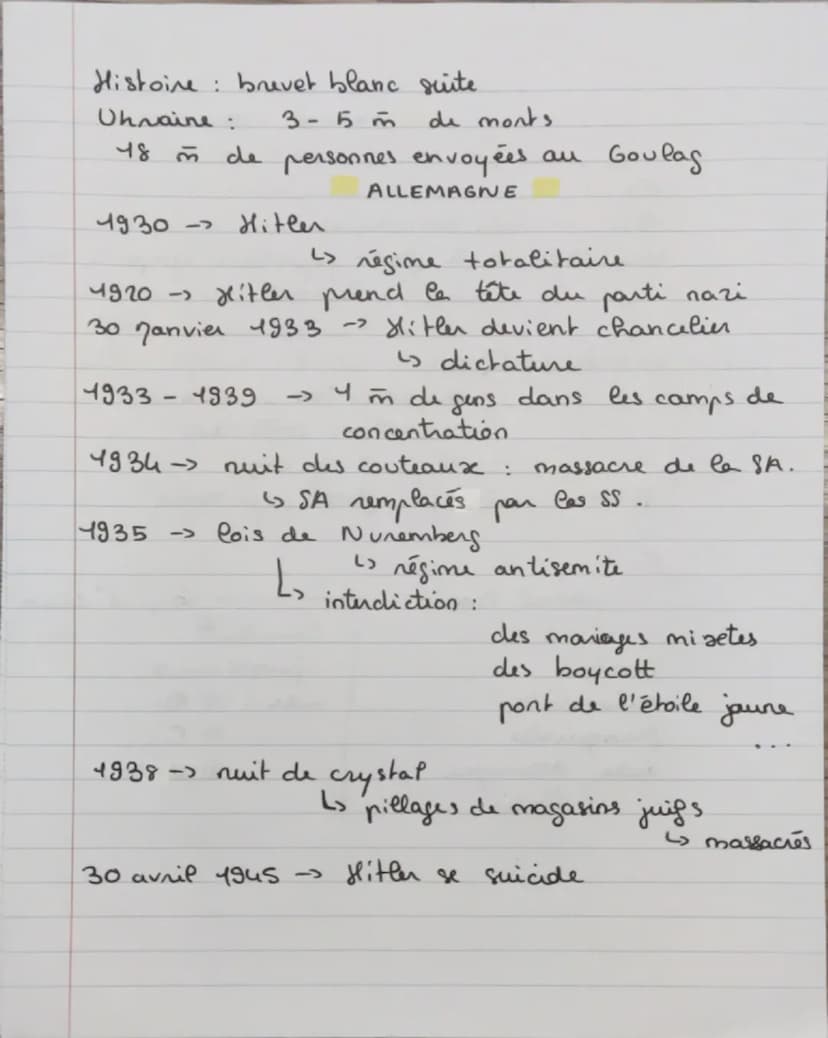 Histoire : brevet blanc suite
Ukraine : 3 - 5 m̄ de morts
18 m̄ de personnes envoyées au Goulag
ALLEMAGNE
1930 -> Hitler
↳ régime totalitaire
1920 -> Hitler prend la tête du parti nazi
30 Janvier 1933 -> Hitler devient chancelier
↳ dictature
1933 - 1939 -> 1 m̄ de gens dans les camps de
concentration
1934 -> nuit des couteaux : massacre de la SA.
↳ SA remplacés par les SS.
1935 -> lois de Nuremberg
↳ régime antisemite
↳ interdiction :
des mariages mixtes
des boycott
port de l'étoile jaune
...
1938 -> nuit de crystal
↳ pillages de magasins juifs
↳ massacrés
30 avril 1945 -> Hitler se suicide